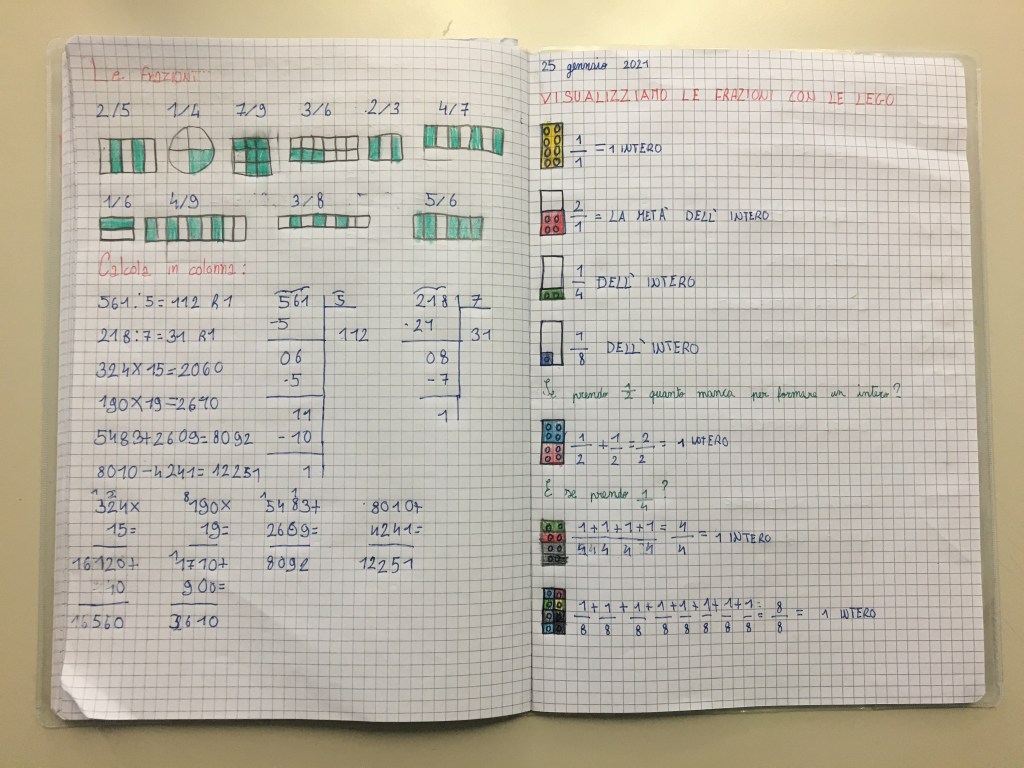 Le frazioni
2/5 1/4 7/9 3/6 2/3 4/7
1/6 4/9 3/8 5/6
Calcola in colonna:
561:5=112 R1
218:7=31 R1
324x15=2060
190x19=2610
5483+2609=8092
8010-4241=12251
561 5
-5
112
06
-5
11
-10
1
218 7
-21
31
08
-7
1
324x
15=
190x
19=
1710+
900=
5483+
2609=
8092
8010+
4241=
12251
25 gennaio 2021
VISUALIZZIAMO LE FRAZIONI CON LE LEGO
1/1 = 1 INTERO
2/1 = LA METÀ DELL' INTERO
1/4 DELL' INTERO
1/8 DELL' INTERO
Se prendo 1/2 quanto manca per formare un intero?
1/2 + 1/2 = 2/2 = 1 INTERO
E se prendo 1/4 ?
1/4 + 1/4 + 1/4 + 1/4 = 4/4 = 1 INTERO
1/8 + 1/8 + 1/8 + 1/8 + 1/8 + 1/8 + 1/8 + 1/8 = 8/8 = 1 INTERO